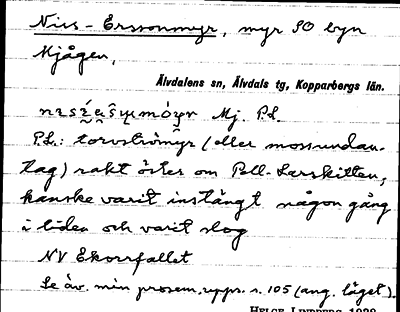 Nics-Erssonmyr, myr SO byn
Mjågen,
Älvdalens sn, Älvdals tg, Kopparbergs län.
Mj. P.L.
P.L.: torvströmyr (eller mossundan-
tag) rakt öster om Pell-Larskitten,
kanske varit instängt någon gång
i tiden och varit slog
NV Ekorrfallet
Se äv. min prosem.upps. s. 105 (ang. läget).
HELGE LINDBERG 1938